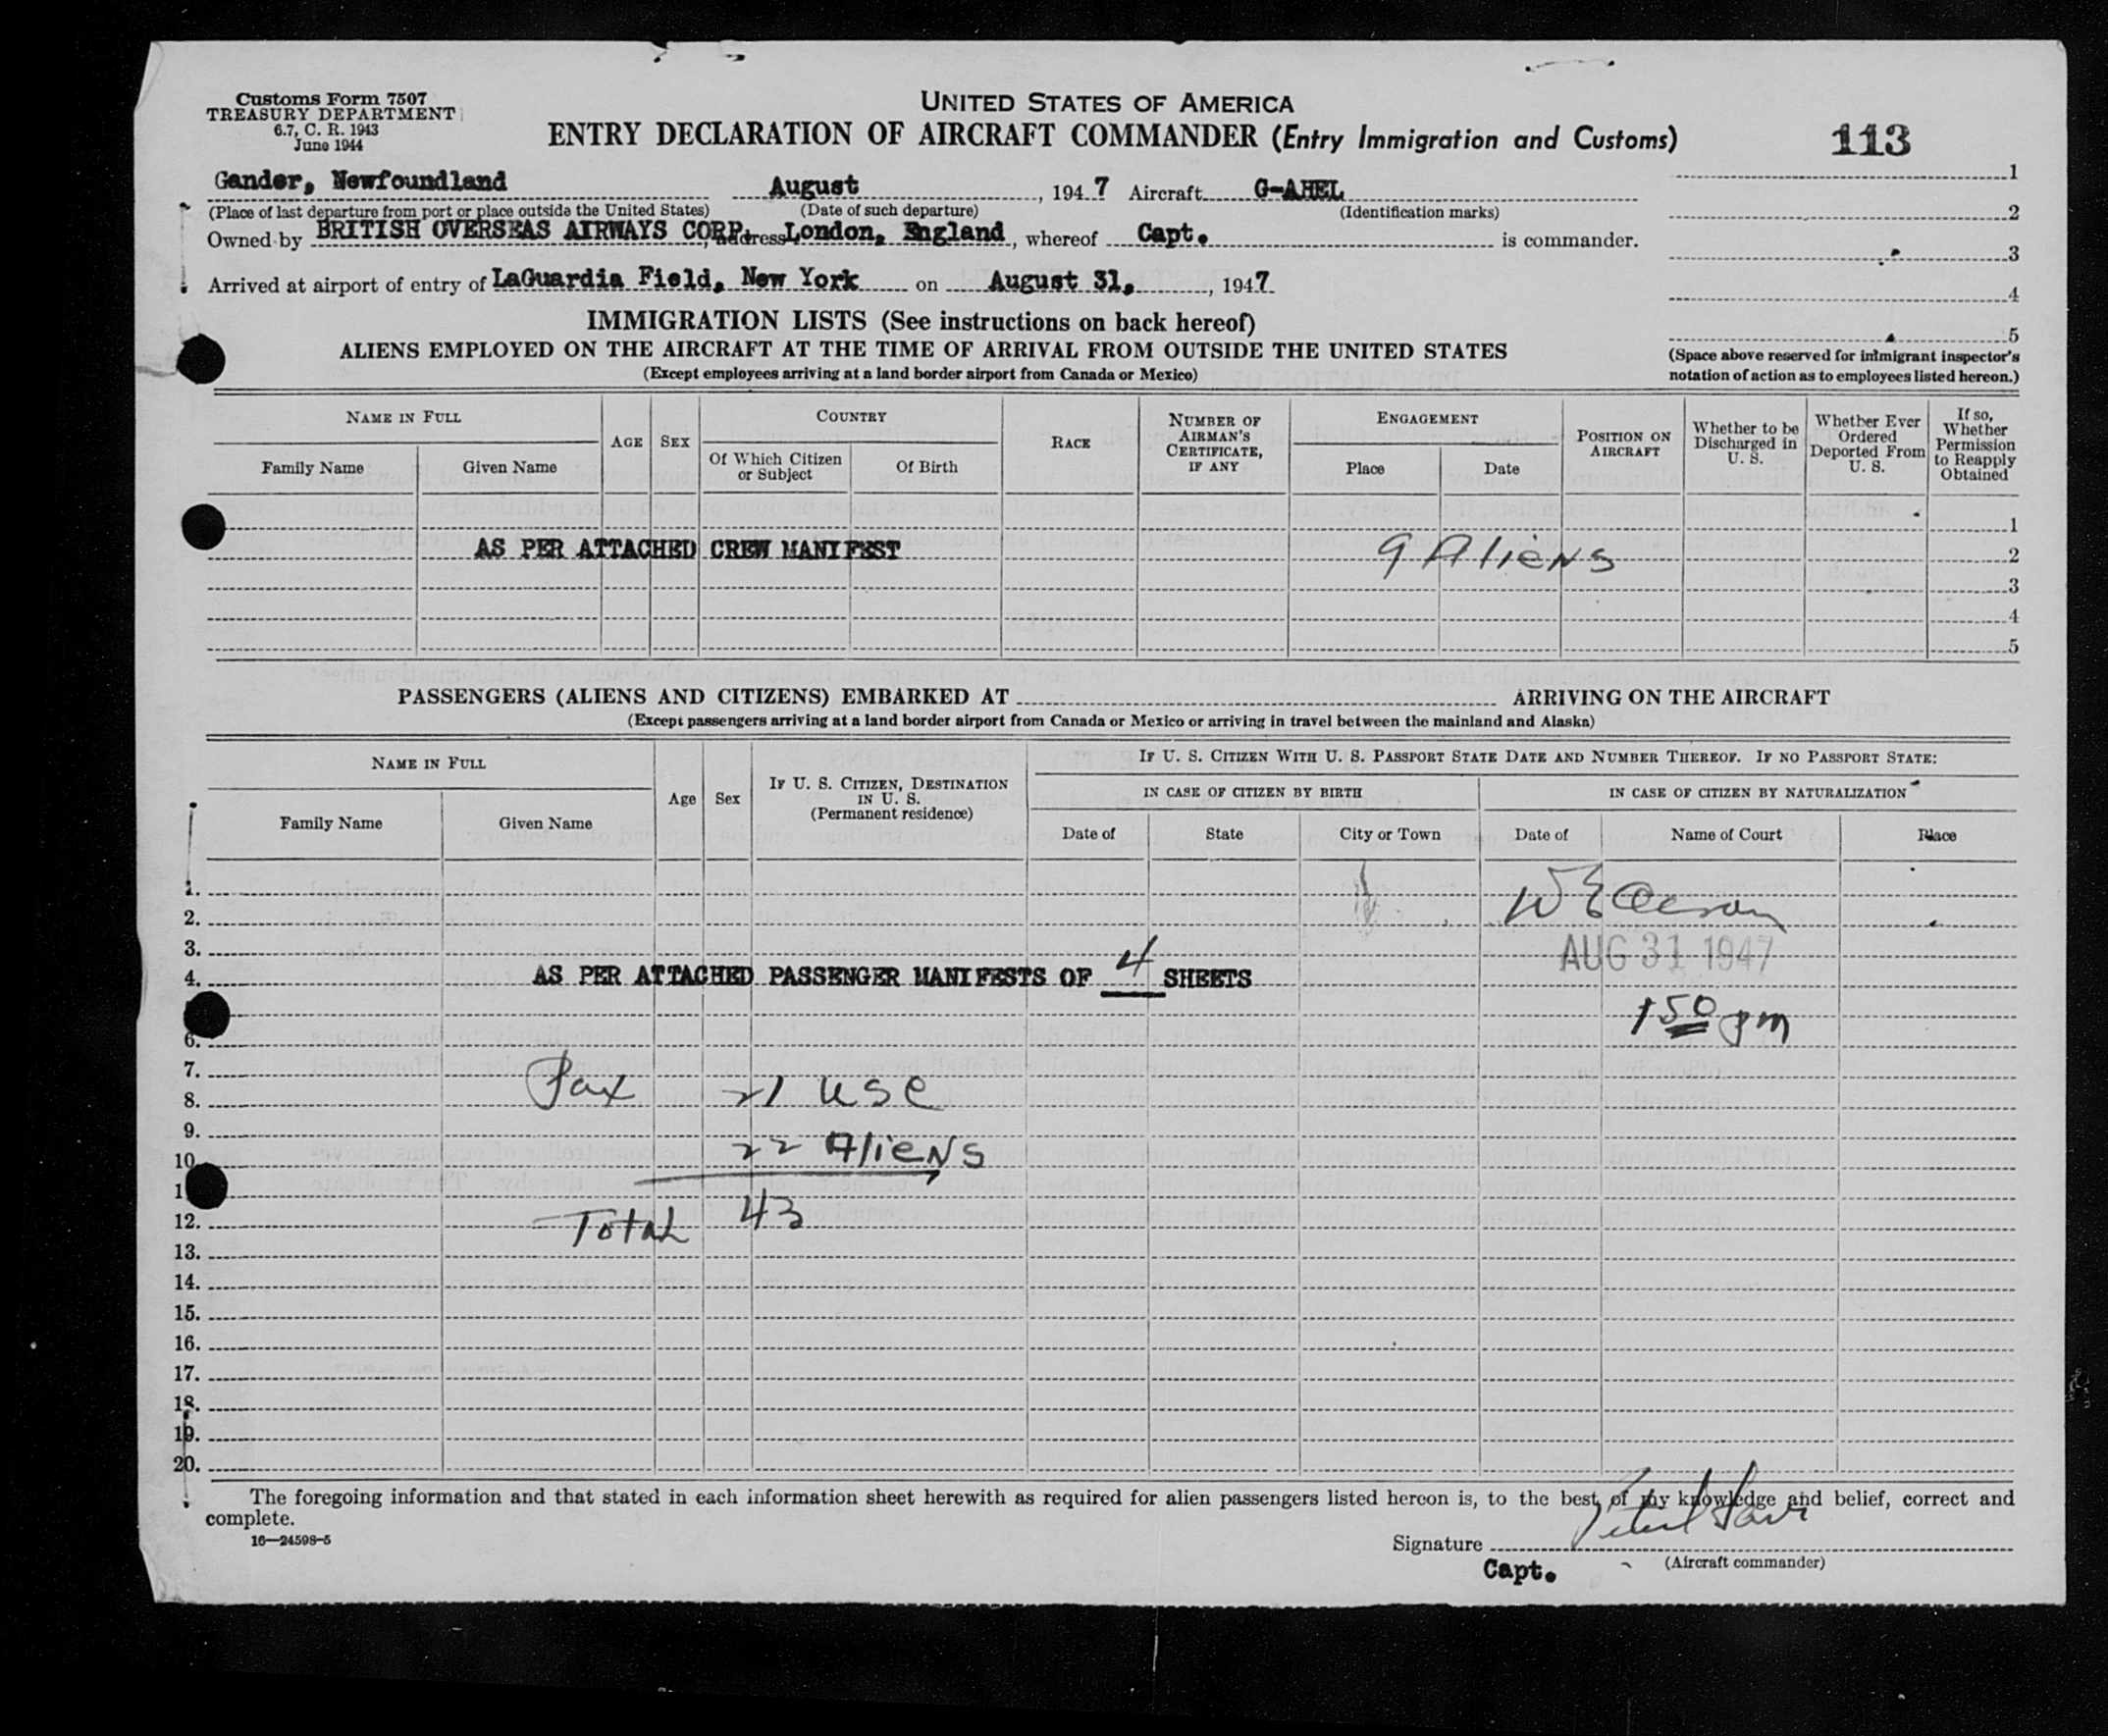 Customs Form 7507
TREASURY DEPARTMENT
6.7, C. R. 1943
June 1944
UNITED STATES OF AMERICA
ENTRY DECLARATION OF AIRCRAFT COMMANDER (Entry Immigration and Customs)
113
Gander, Newfoundland August , 1947 Aircraft G-AHEL
(Place of last departure from port or place outside the United States) (Date of such departure) (Identification marks)
Owned by BRITISH OVERSEAS AIRWAYS CORP. London, England , whereof Capt. is commander.
Arrived at airport of entry of LaGuardia Field, New York on August 31, , 1947
1
2
3
4
5
(Space above reserved for immigrant inspector's
notation of action as to employees listed hereon.)
IMMIGRATION LISTS (See instructions on back hereof)
ALIENS EMPLOYED ON THE AIRCRAFT AT THE TIME OF ARRIVAL FROM OUTSIDE THE UNITED STATES
(Except employees arriving at a land border airport from Canada or Mexico)
NAME IN FULL
Family Name
Given Name
AGE
SEX
COUNTRY
Of Which Citizen
or Subject
Of Birth
RACE
NUMBER OF
AIRMAN'S
CERTIFICATE,
IF ANY
ENGAGEMENT
Place
Date
POSITION ON
AIRCRAFT
Whether to be
Discharged in
U. S.
Whether Ever
Ordered
Deported From
U. S.
If so,
Whether
Permission
to Reapply
Obtained
1
AS PER ATTACHED CREW MANIFEST 9 Aliens 2
3
4
5
PASSENGERS (ALIENS AND CITIZENS) EMBARKED AT ARRIVING ON THE AIRCRAFT
(Except passengers arriving at a land border airport from Canada or Mexico or arriving in travel between the mainland and Alaska)
NAME IN FULL
Family Name
Given Name
Age
Sex
IF U. S. CITIZEN, DESTINATION
IN U. S.
(Permanent residence)
IF U. S. CITIZEN WITH U. S. PASSPORT STATE DATE AND NUMBER THEREOF. IF NO PASSPORT STATE:
IN CASE OF CITIZEN BY BIRTH
Date of
State
City or Town
IN CASE OF CITIZEN BY NATURALIZATION
Date of
Name of Court
Place
1.
2.
3. AUG 31 1947
4. AS PER ATTACHED PASSENGER MANIFESTS OF 4 SHEETS
150 pm
6.
7.
8. Pax 21 USC
9.
10. 22 Aliens
1
12. Total 43
13.
14.
15.
16.
17.
18.
19.
20.
The foregoing information and that stated in each information sheet herewith as required for alien passengers listed hereon is, to the best of my knowledge and belief, correct and
complete.
16—24598-5
Signature
Capt. (Aircraft commander)